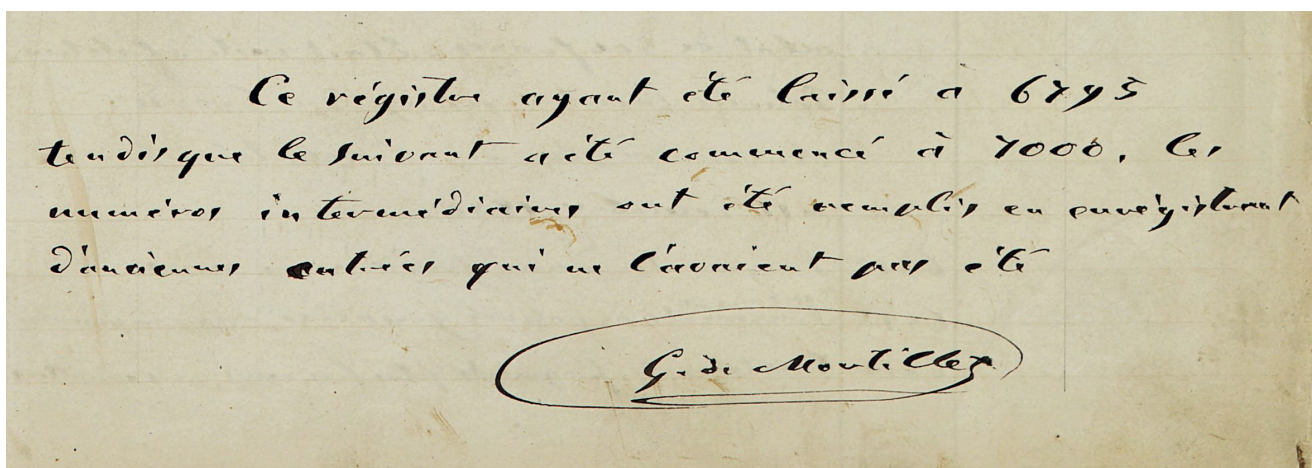 Ce régistre ayant été laissé a 6795
tandisque le suivant a été commencé à 7000, les
numéros intermédiaires ont été remplis en enrégistrant
d'anciennes entrées qui ne l'avaient pas été
G. de Mortillet